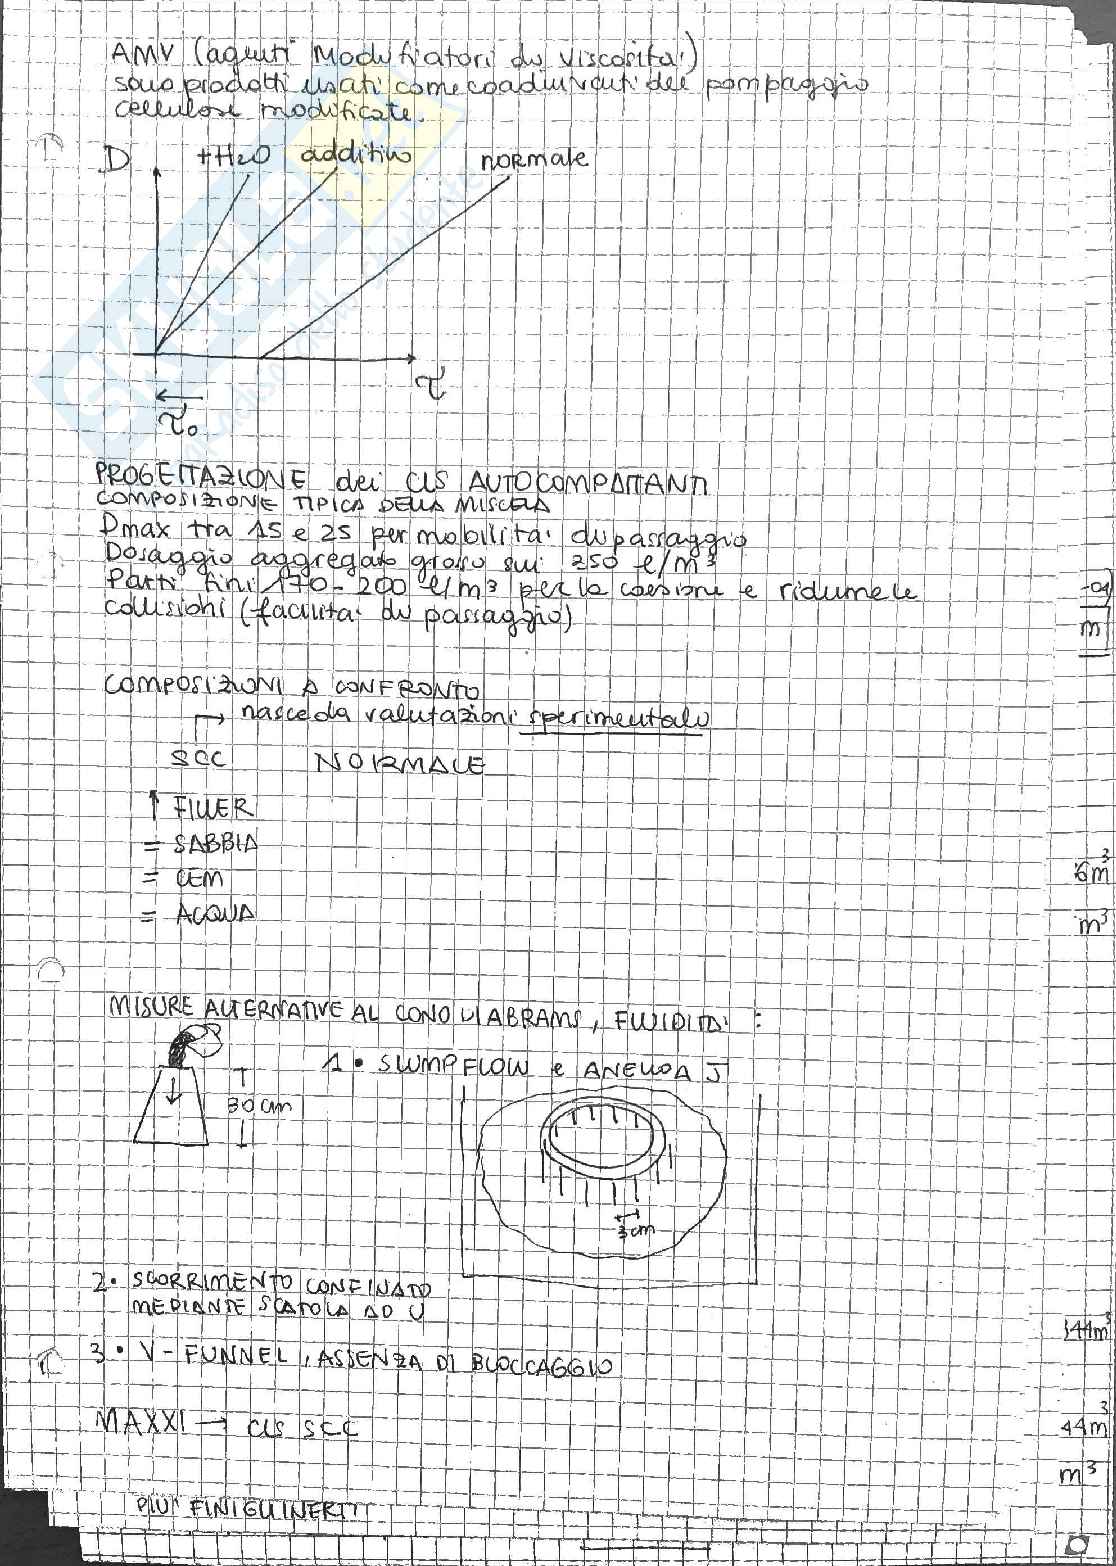 AMV (agenti Modificatori di Viscosità)
sono prodotti usati come coadiuvanti del pompaggio
cellulose modificate.
D +H2O additivo normale
τ
τ₀
PROGETTAZIONE dei CLS AUTOCOMPATTANTI
COMPOSIZIONE TIPICA DELLA MISCELA
Dmax tra 15 e 25 per mobilità di passaggio
Dosaggio aggregato grosso sui 250 l/m³
Parti fini 170-200 l/m³ per la coesione e ridurne le
collisioni (facilità di passaggio)
m
COMPOSIZIONI A CONFRONTO
→ nasce da valutazioni sperimentale
SCC NORMALE
↑ FILLER
= SABBIA
= CEM
= ACQUA
6m³
m³
MISURE ALTERNATIVE AL CONO DI ABRAMS, FLUIDITA' :
1• SLUMPFLOW e ANELLO A J
30 cm
3 cm
2• SCORRIMENTO CONFINATO
MEDIANTE SCATOLA AD U
44m³
3• V-FUNNEL, ASSENZA DI BLOCCAGGIO
MAXXI → CLS SCC
44m³
m³
PIU' FINI GLI INERTI